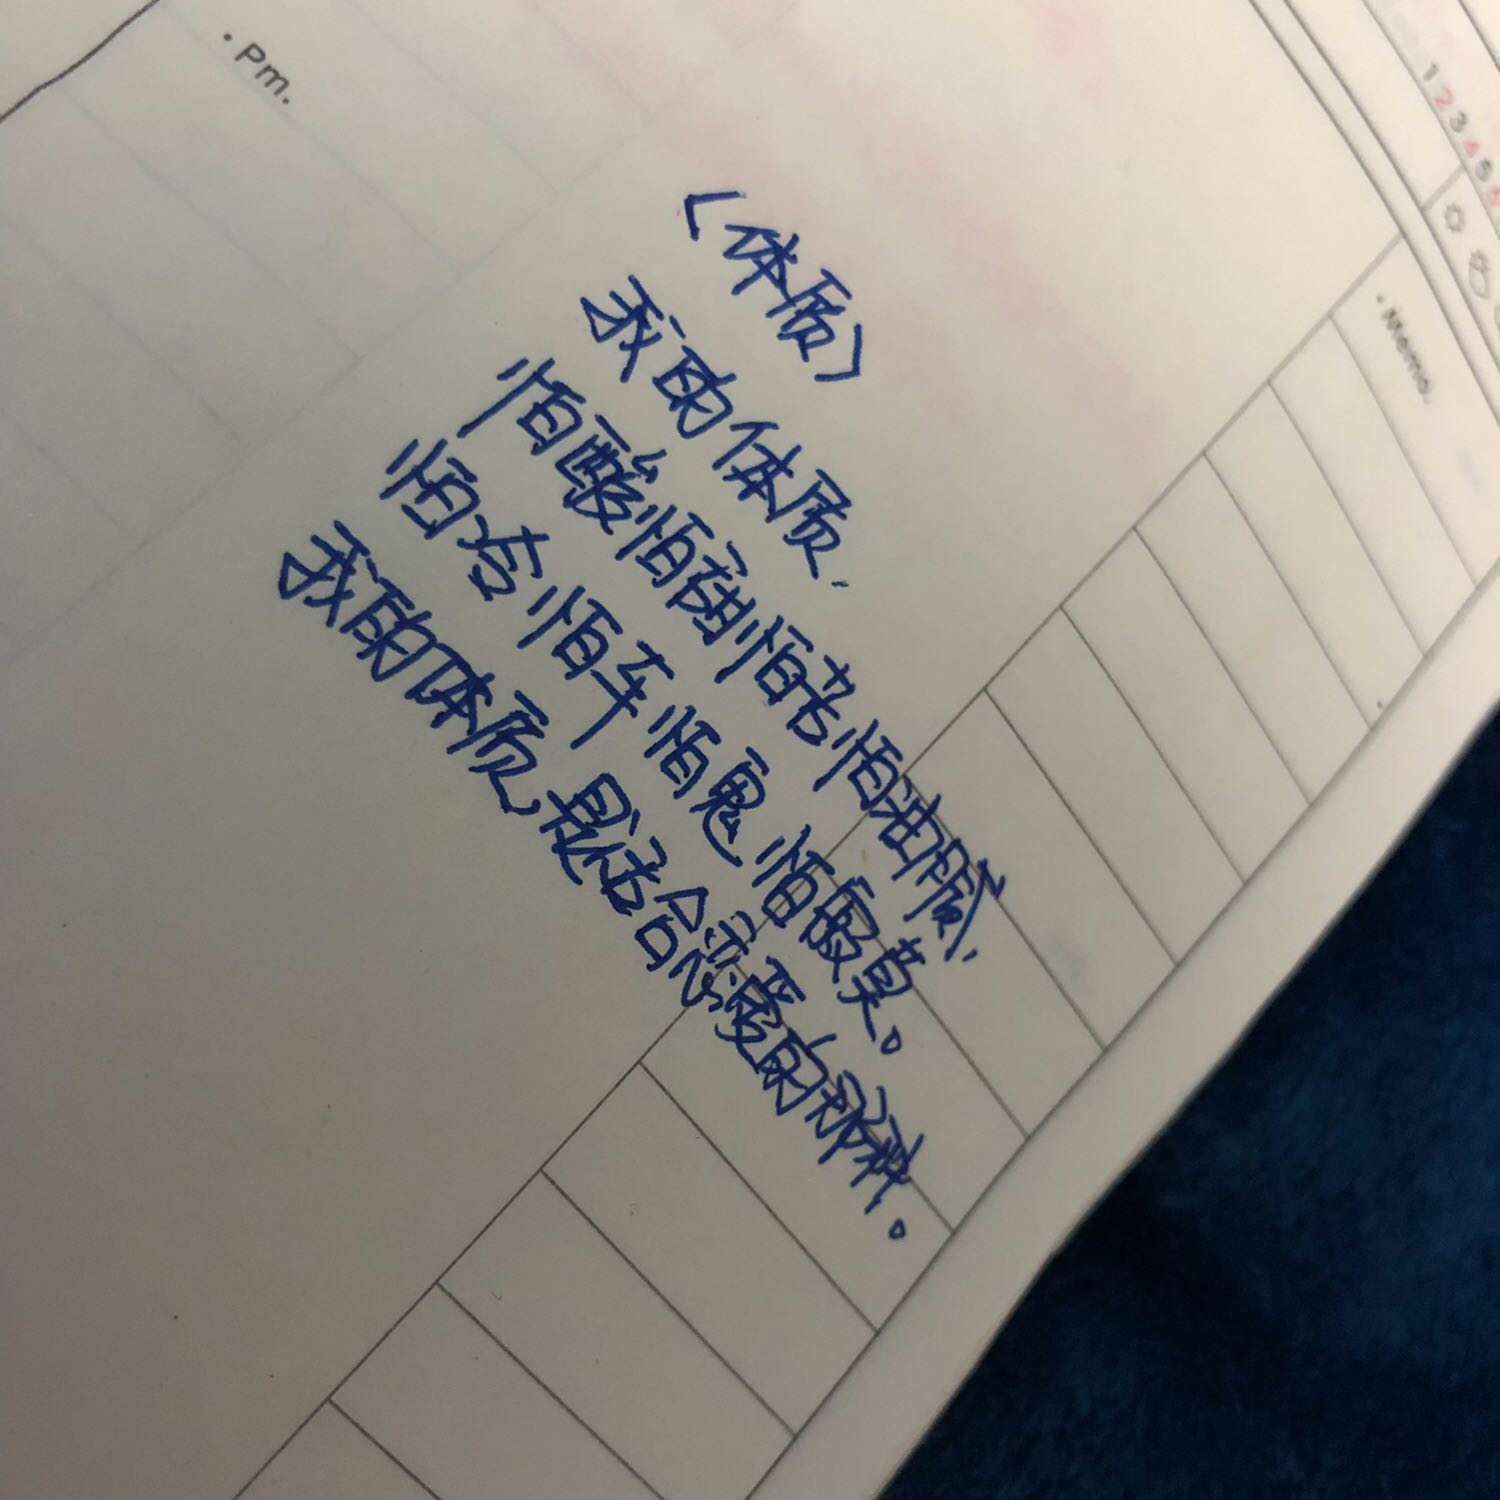 · Pm.
1 2 3 4 5 6
· Memo.
<体质>
我的体质.
怕酸怕甜怕苦怕油腻.
怕冷怕车怕鬼怕寂莫。
我的体质,是适合恋爱的那种.。